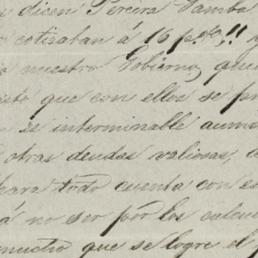 dicen Pereira Gamba
cotizaban á 16 p.%,!! y
nuestro Gobierno, que
que con ellos se p
es interminable aume
otras deudas valiosas,
para todo cuenta con es
á no ser por los calcu
mucho que se logre el p